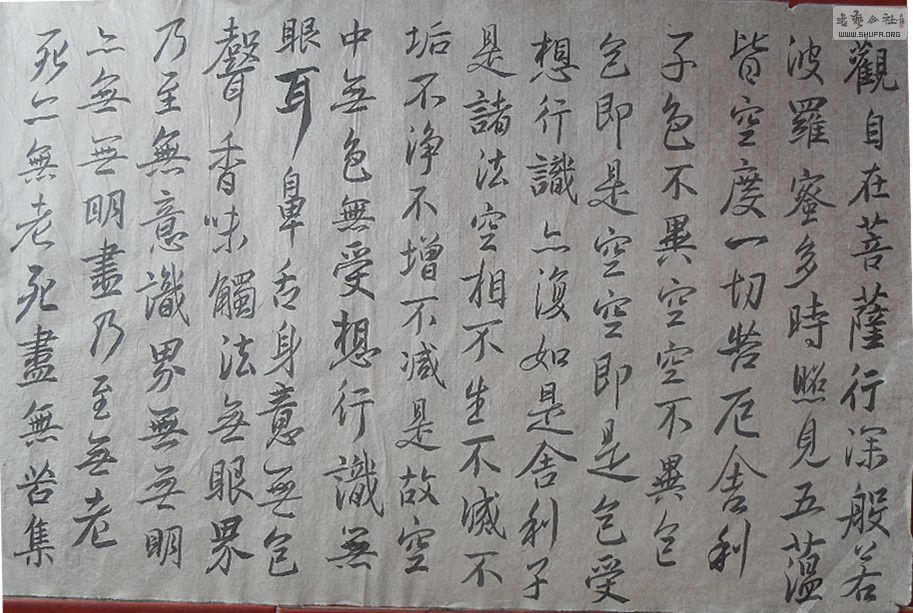 觀自在菩薩行深般若
波羅蜜多時照見五薀
皆空度一切苦厄舍利
子色不異空空不異色
色即是空空即是色受
想行識亦復如是舍利子
是諸法空相不生不滅不
垢不淨不增不減是故空
中無色無受想行識無
眼耳鼻舌身意無色
聲香味觸法無眼界
乃至無意識界無無明
亦無無明盡乃至無老
死亦無老死盡無苦集
WWW.SHUFA.ORG